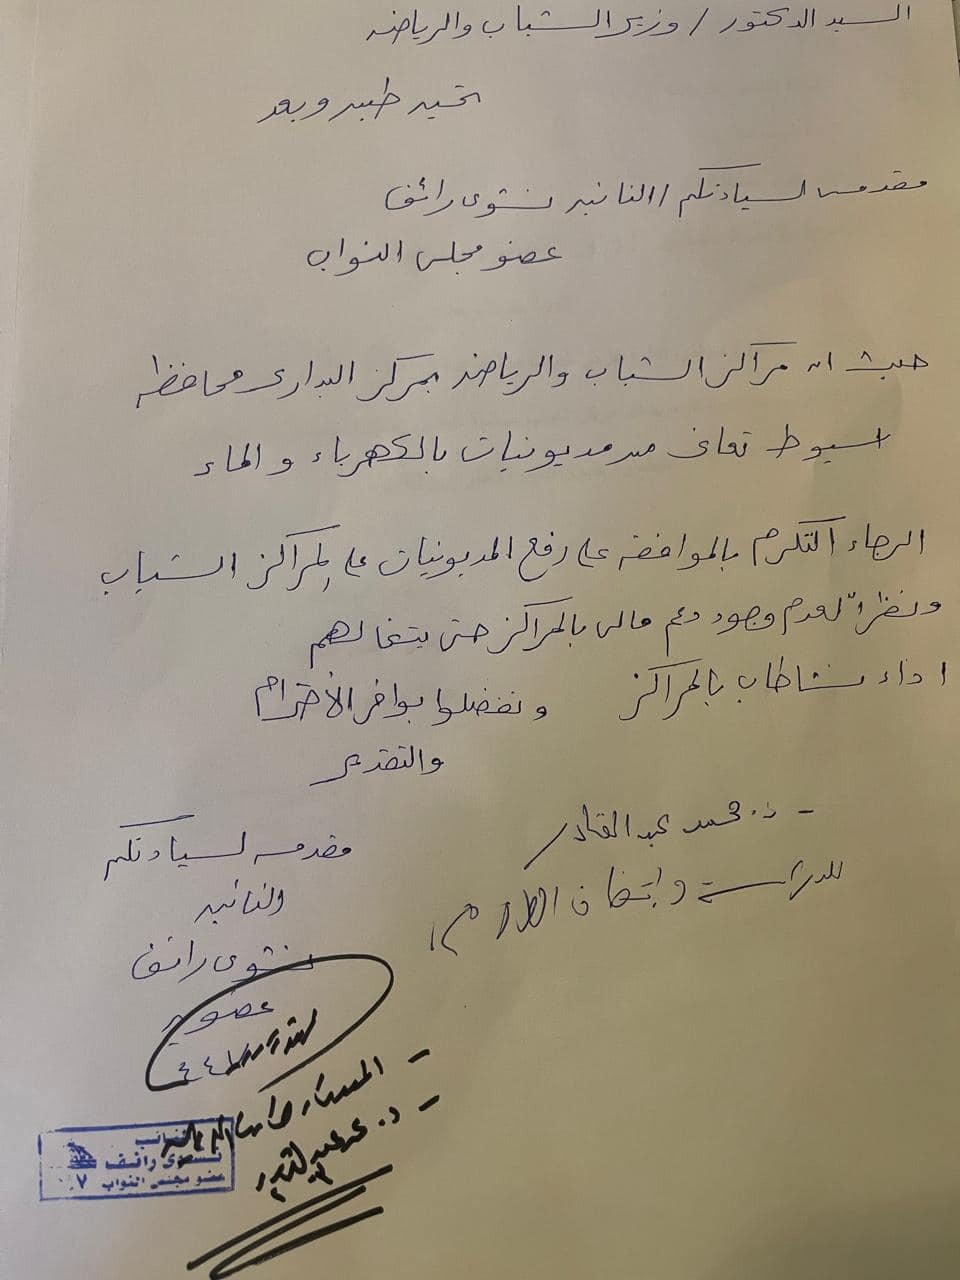 السيد الدكتور / وزير الشباب والرياضه
تحيه طيبه وبعد
مقدمه لسيادتكم / النائبه نشوى رائف
عضو مجلس النواب
حيث ان مراكز الشباب والرياضه بمركز البدارى محافظه
اسيوط تعانى من مديونيات بالكهرباء والماء
الرجاء التكرم بالموافقه على رفع المديونيات على مراكز الشباب
ونظراً لعدم وجود دعم مالى بالمراكز حتى يتثنا لهم
اداء نشاطات بالمراكز وتفضلوا بوافر الأحترام
والتقدير
- د. محمد عبد القادر
للدراسة واتخاذ اللازم
مقدمه لسيادتكم
النائبه
نشوى رائف
عضو
- د.
النائب
نشوى رائف
عضو مجلس النواب